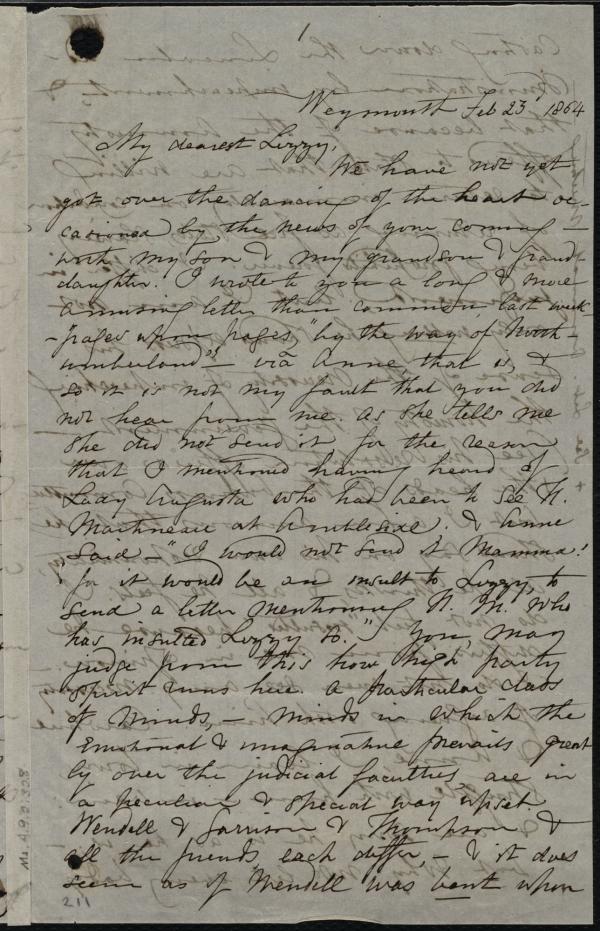 1
Weymouth Feb 23d 1864
My dearest Lizzy,
We have not yet
got over the dancing of the heart oc-
casioned by the news of your coming –
with my son & my grandson & grand-
daughter. I wrote to you a long & more
amusing letter than common, last week
- "pages upon pages," "by the way of North-
umberland" – via Anne, that is, &
so it is not my fault that you did
not hear from me. As she tells me
she did not send it for the reason
that I mentioned having heard of
Lady Augusta who had been to see H.
Martineau at Ambleside. & Anne
said – "I would not send it Mamma!
for it would be an insult to Lizzy, to
send a letter mentioning H. M. who
has insulted Lizzy so." You, may
judge from this how high party
spirit runs here. A particular class
of minds, – minds in which the
emotional & imaginative prevails great
ly over the judicial faculties, are in
a peculiar & special way upset
Wendell & Garrison & Thompson &
all the friends, each differ, – & it does
seem as if Wendell was bent upon
211